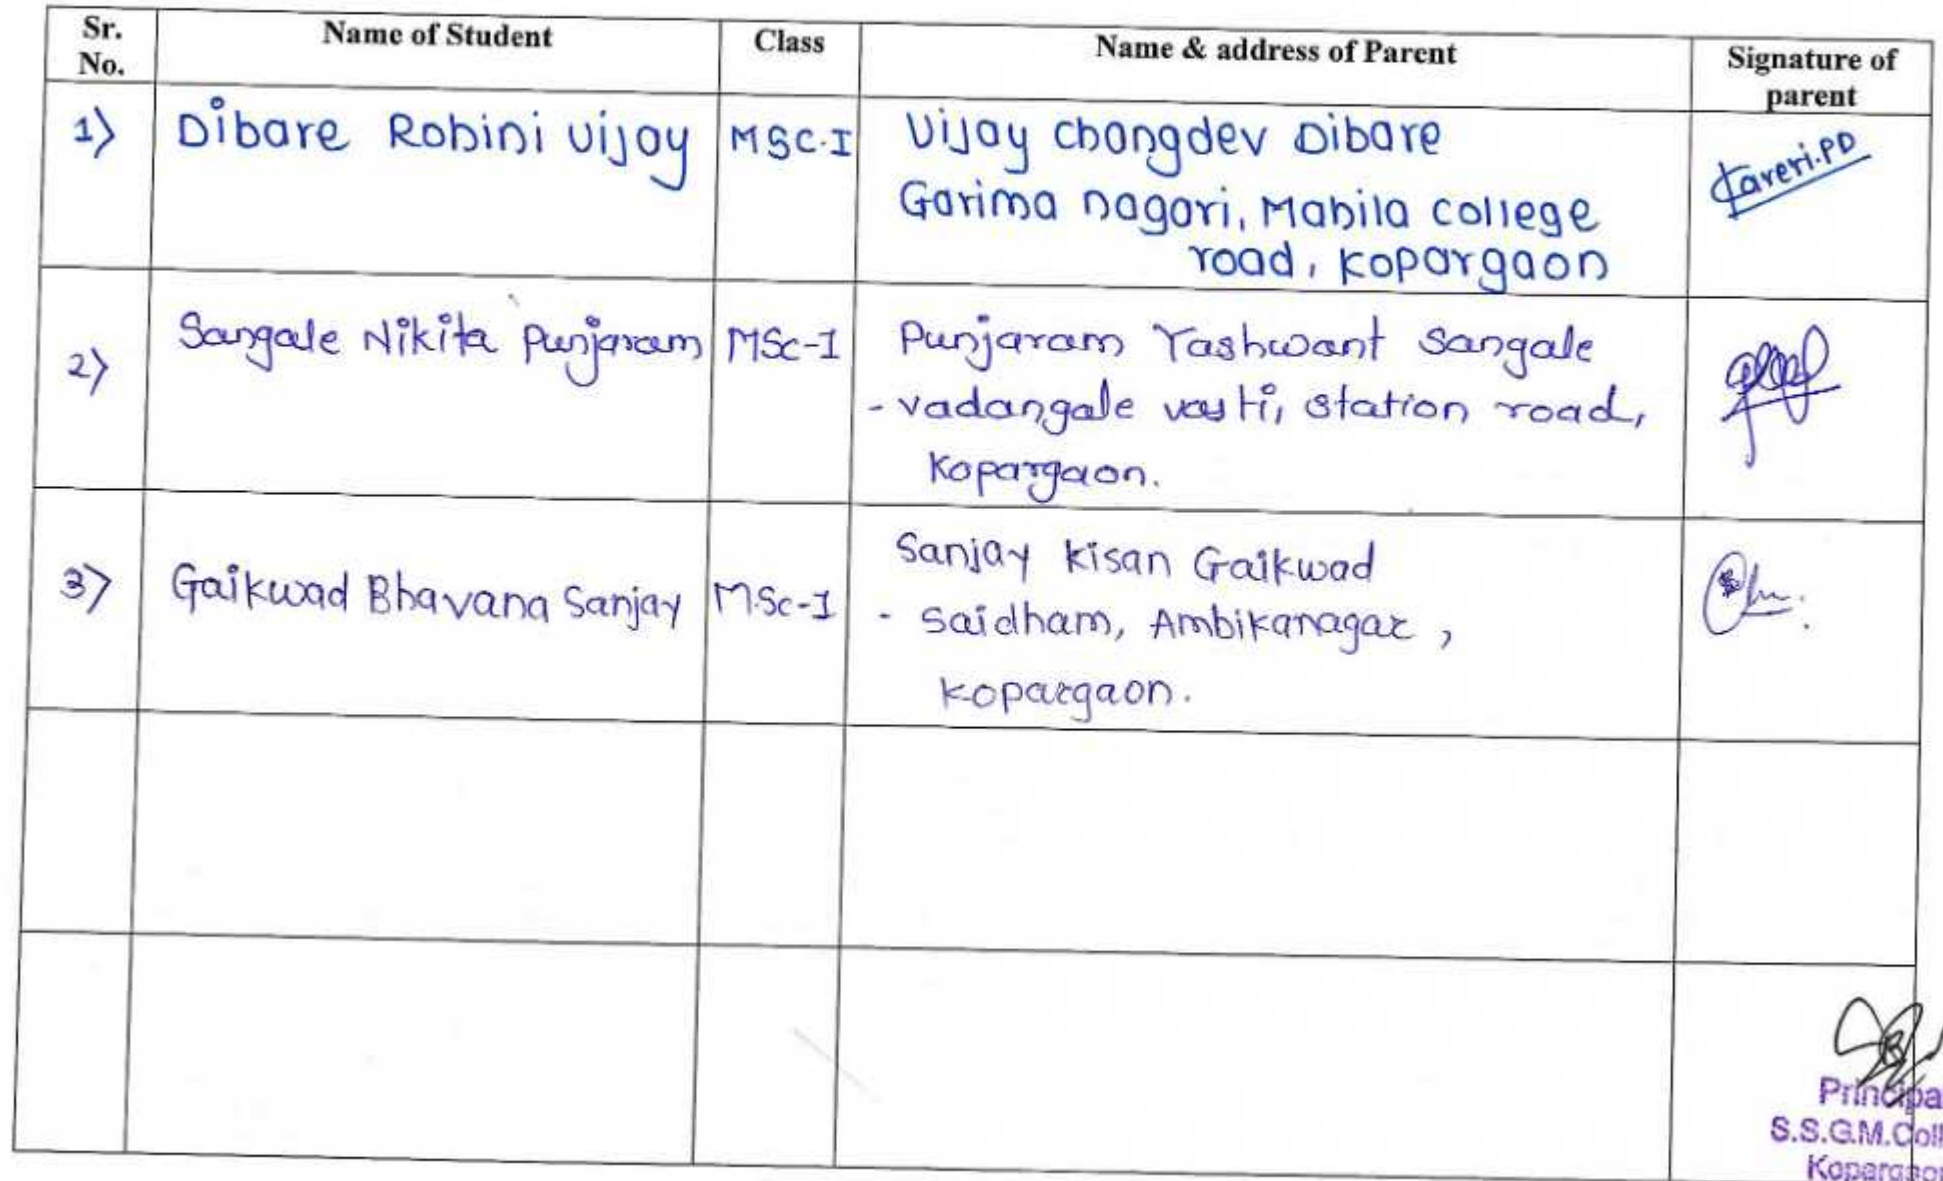 Sr. No. Name of Student Class Name & address of Parent Signature of parent
1) Dihare Rohini Vijay MSC-I Vijay changdev Dihare
Garima nagari, Mahila college
road, kopargaon
2) Sangale Nikita Punjaram MSc-I Punjaram Yashwant Sangale
- vadangale vasti, station road,
Kopargaon.
3) Gaikwad Bhavana Sanjay M.Sc-I Sanjay kisan Gaikwad
- Saidham, Ambikanagar,
kopargaon.
Principa
S.S.G.M.Coll
Kopargaon